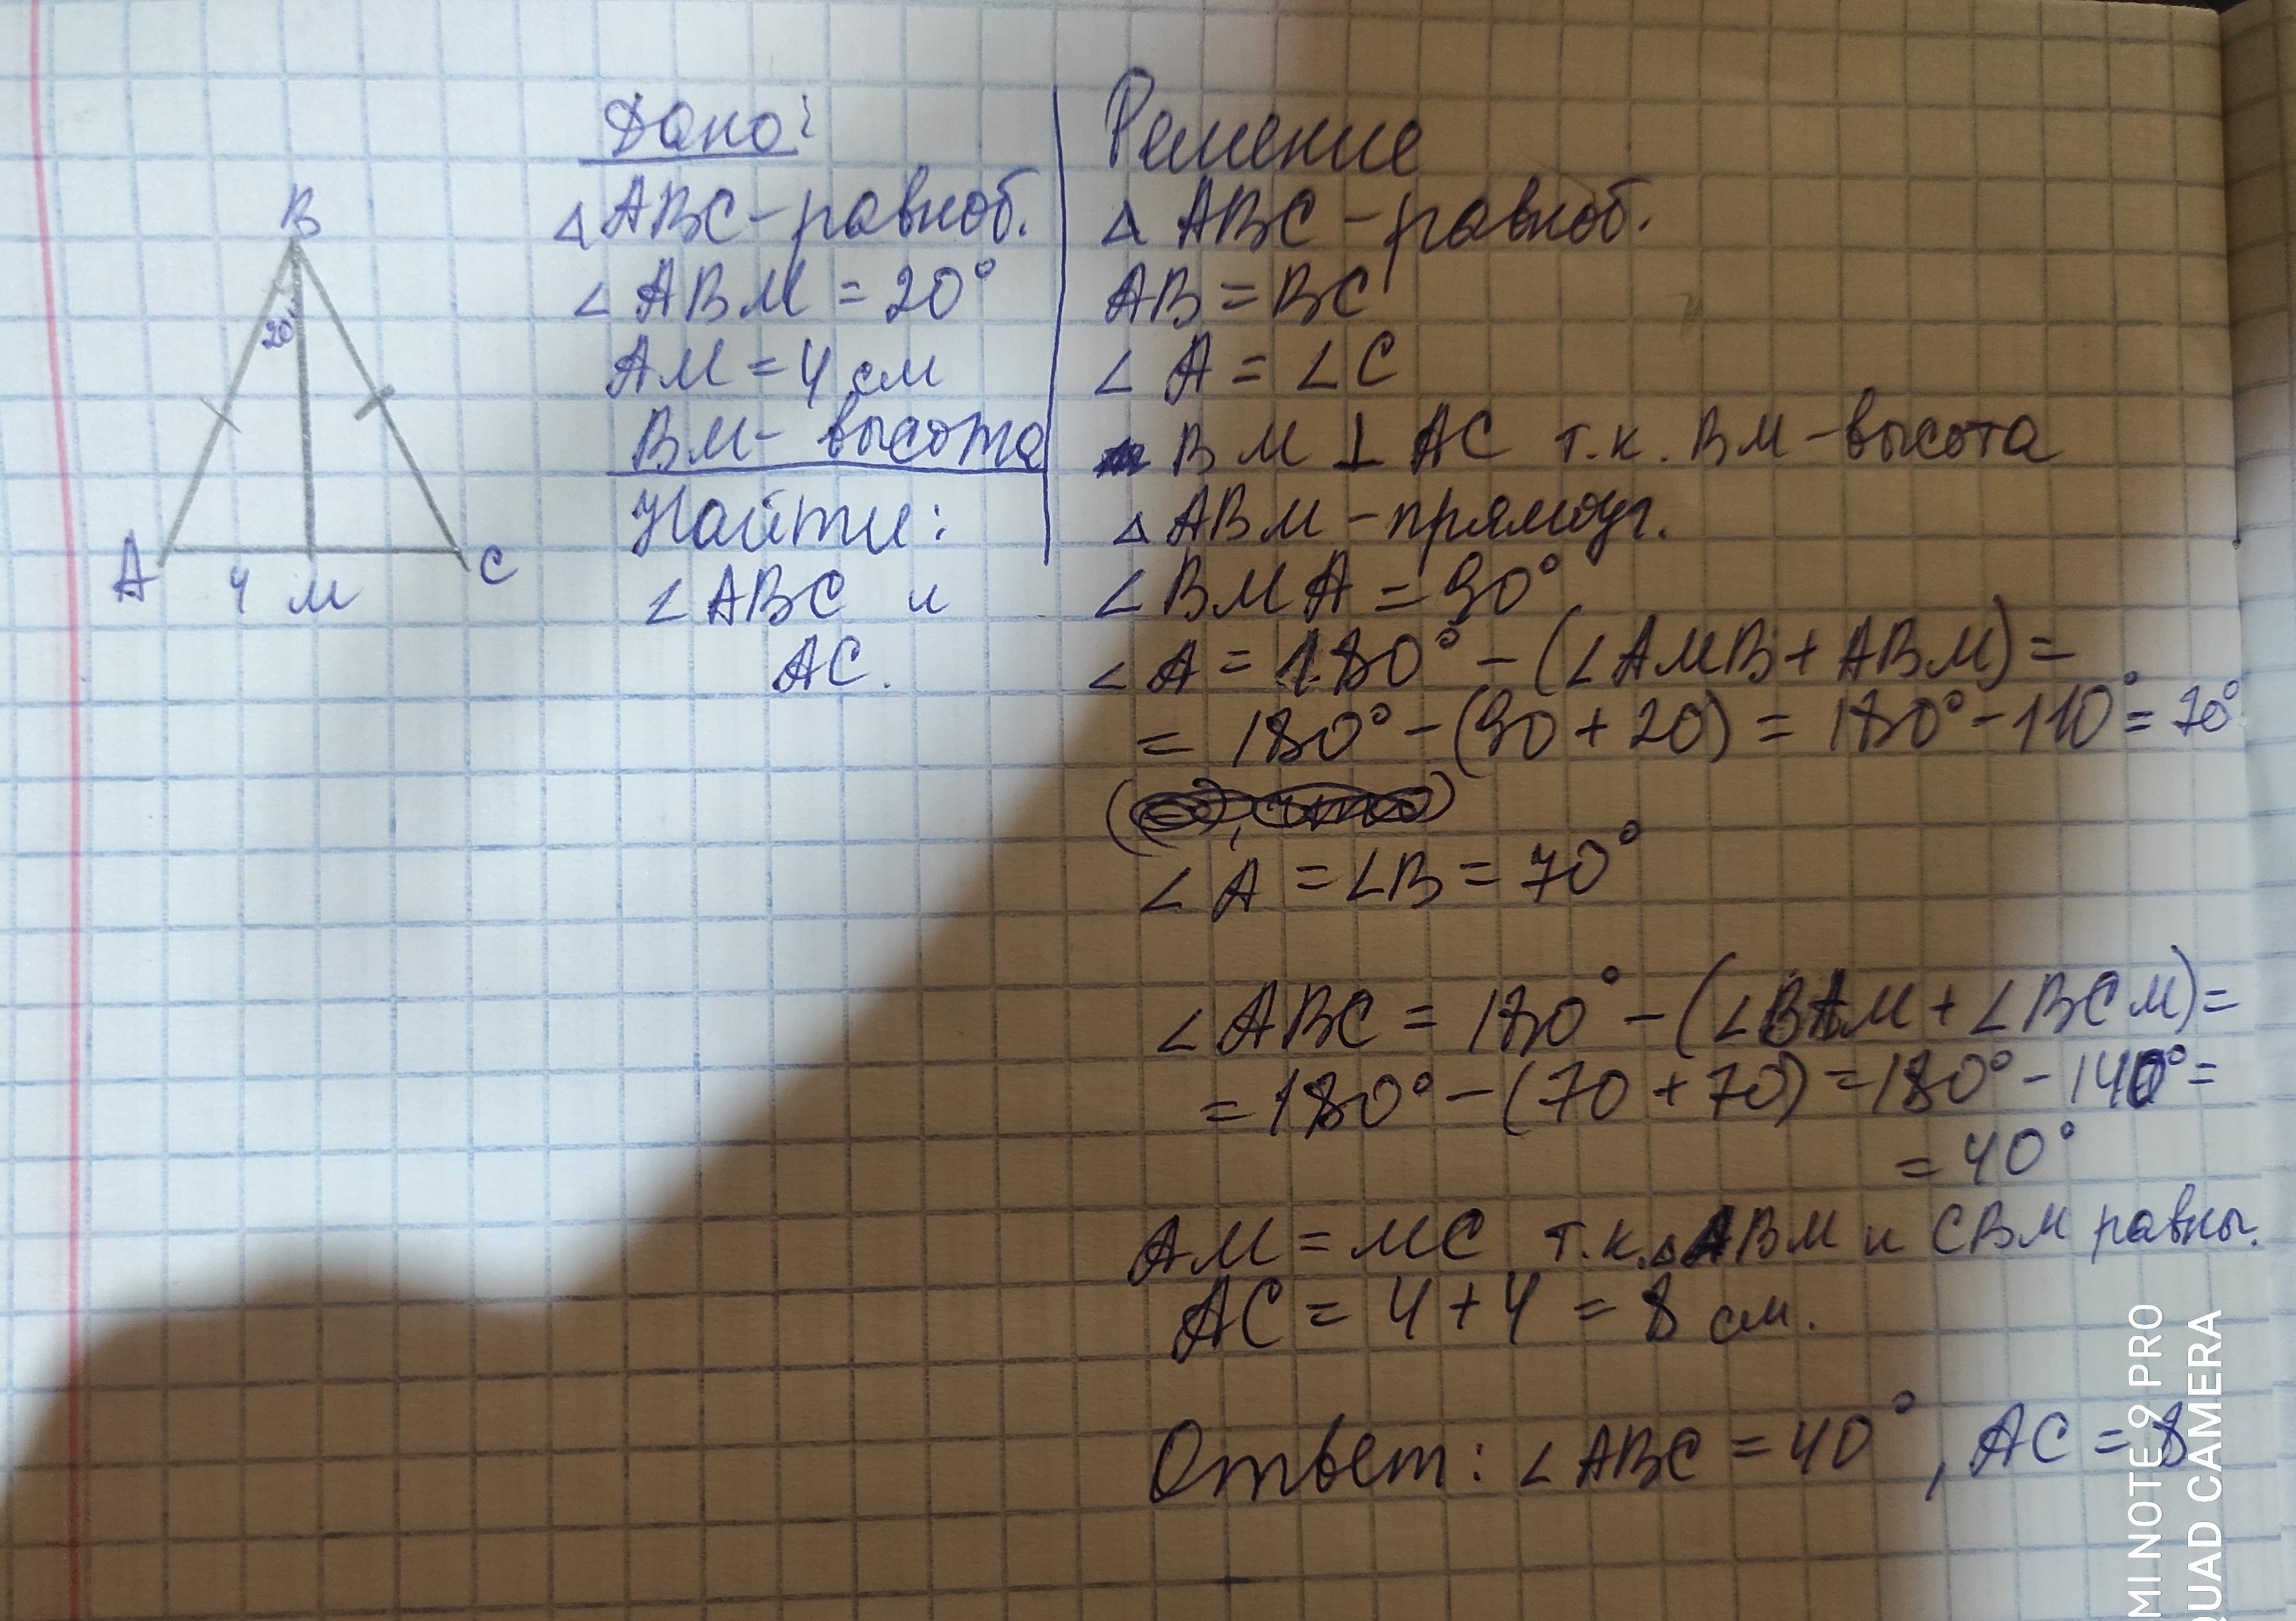 B
20°
A
4
M
C
Дано:
△ ABC - равноб.
∠ ABM = 20°
AM = 4 см
BM - высота
Найти:
∠ ABC и
AC.
Решение
△ ABC - равноб.
AB = BC
∠ A = ∠ C
BM ⊥ AC т.к. BM - высота
△ ABM - прямоуг.
∠ BMA = 90°
∠ A = 180° - (∠AMB + ABM) =
= 180° - (90 + 20) = 180° - 110° = 70°
∠ A = ∠B = 70°
∠ ABC = 180° - (∠BAM + ∠BCM) =
= 180° - (70 + 70) = 180° - 140° =
= 40°
AM = MC т.к. △ABM и CBM равны.
AC = 4 + 4 = 8 см.
Ответ: ∠ ABC = 40°, AC = 8
MI NOTE 9 PRO
QUAD CAMERA